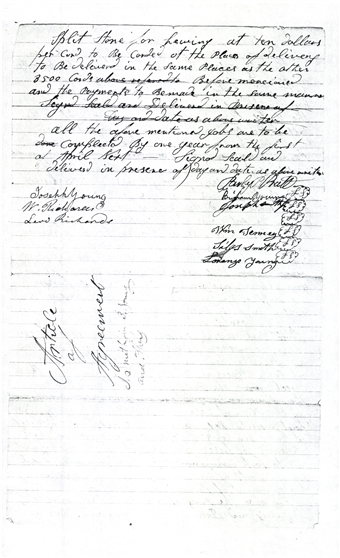 Split Stone for paveing at ten dollars
per Cord to Be Corded at the Place of delivery
to Be delivered in the Same Places as the other
3500 Cords above refered to Before mencioned
and the Payments to Be made in the same manner
Signed Seald and Delivered in Presence of
Day and date as above writen
all the afore mentioned Jobs are to be
done Compleated By one year from the first
of April Next — Signed Seal and
delivered in presence of Day and date as above writen
Joseph Young
W.
Levi Richards
Parly Pratt
Brigham Young
Joseph
Wm
Silas Smith
Lorenzo Young
Article
of
Agreement